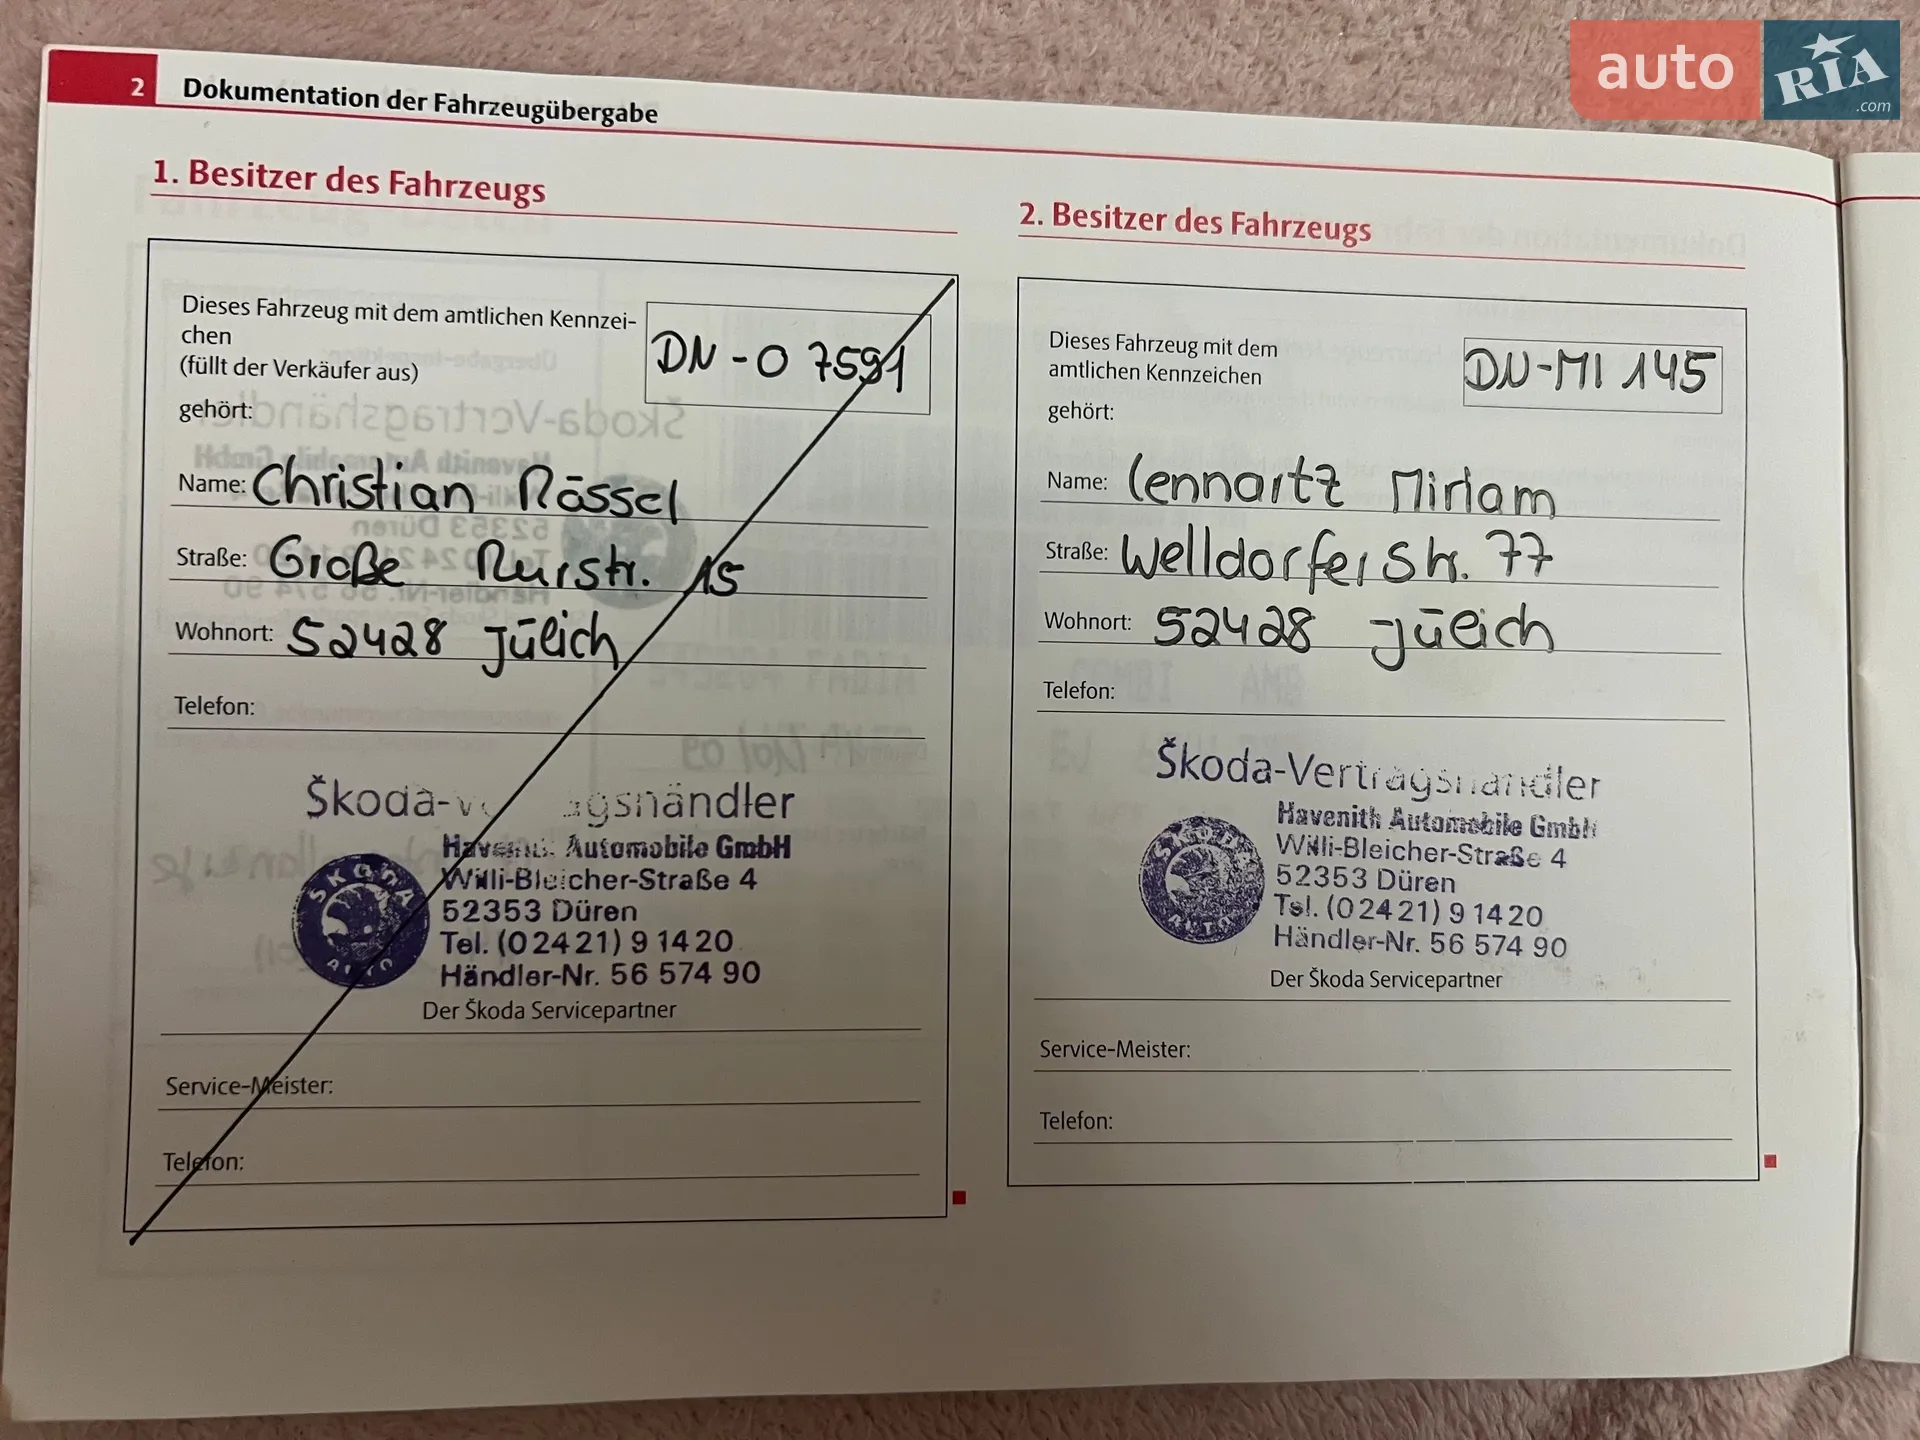 auto RIA .com
2 Dokumentation der Fahrzeugübergabe
1. Besitzer des Fahrzeugs
Dieses Fahrzeug mit dem amtlichen Kennzei-
chen
(füllt der Verkäufer aus)
DN-O 7591
gehört:
Name: Christian Rössel
Straße: Große Rurstr. 15
Wohnort: 52428 Jülich
Telefon:
Škoda-V agshändler
Havenith Automobile GmbH
Willi-Bleicher-Straße 4
52353 Düren
Tel. (02421) 91420
Händler-Nr. 56 574 90
ŠKODA AUTO
Der Škoda Servicepartner
Service-Meister:
Telefon:
2. Besitzer des Fahrzeugs
Dieses Fahrzeug mit dem
amtlichen Kennzeichen
DN-MI 145
gehört:
Name: Lennartz Miriam
Straße: Welldorfer Str. 77
Wohnort: 52428 Jülich
Telefon:
Škoda-Vertragshändler
Havenith Automobile GmbH
Willi-Bleicher-Straße 4
52353 Düren
Tel. (02421) 91420
Händler-Nr. 56 574 90
ŠKODA AUTO
Der Škoda Servicepartner
Service-Meister:
Telefon: